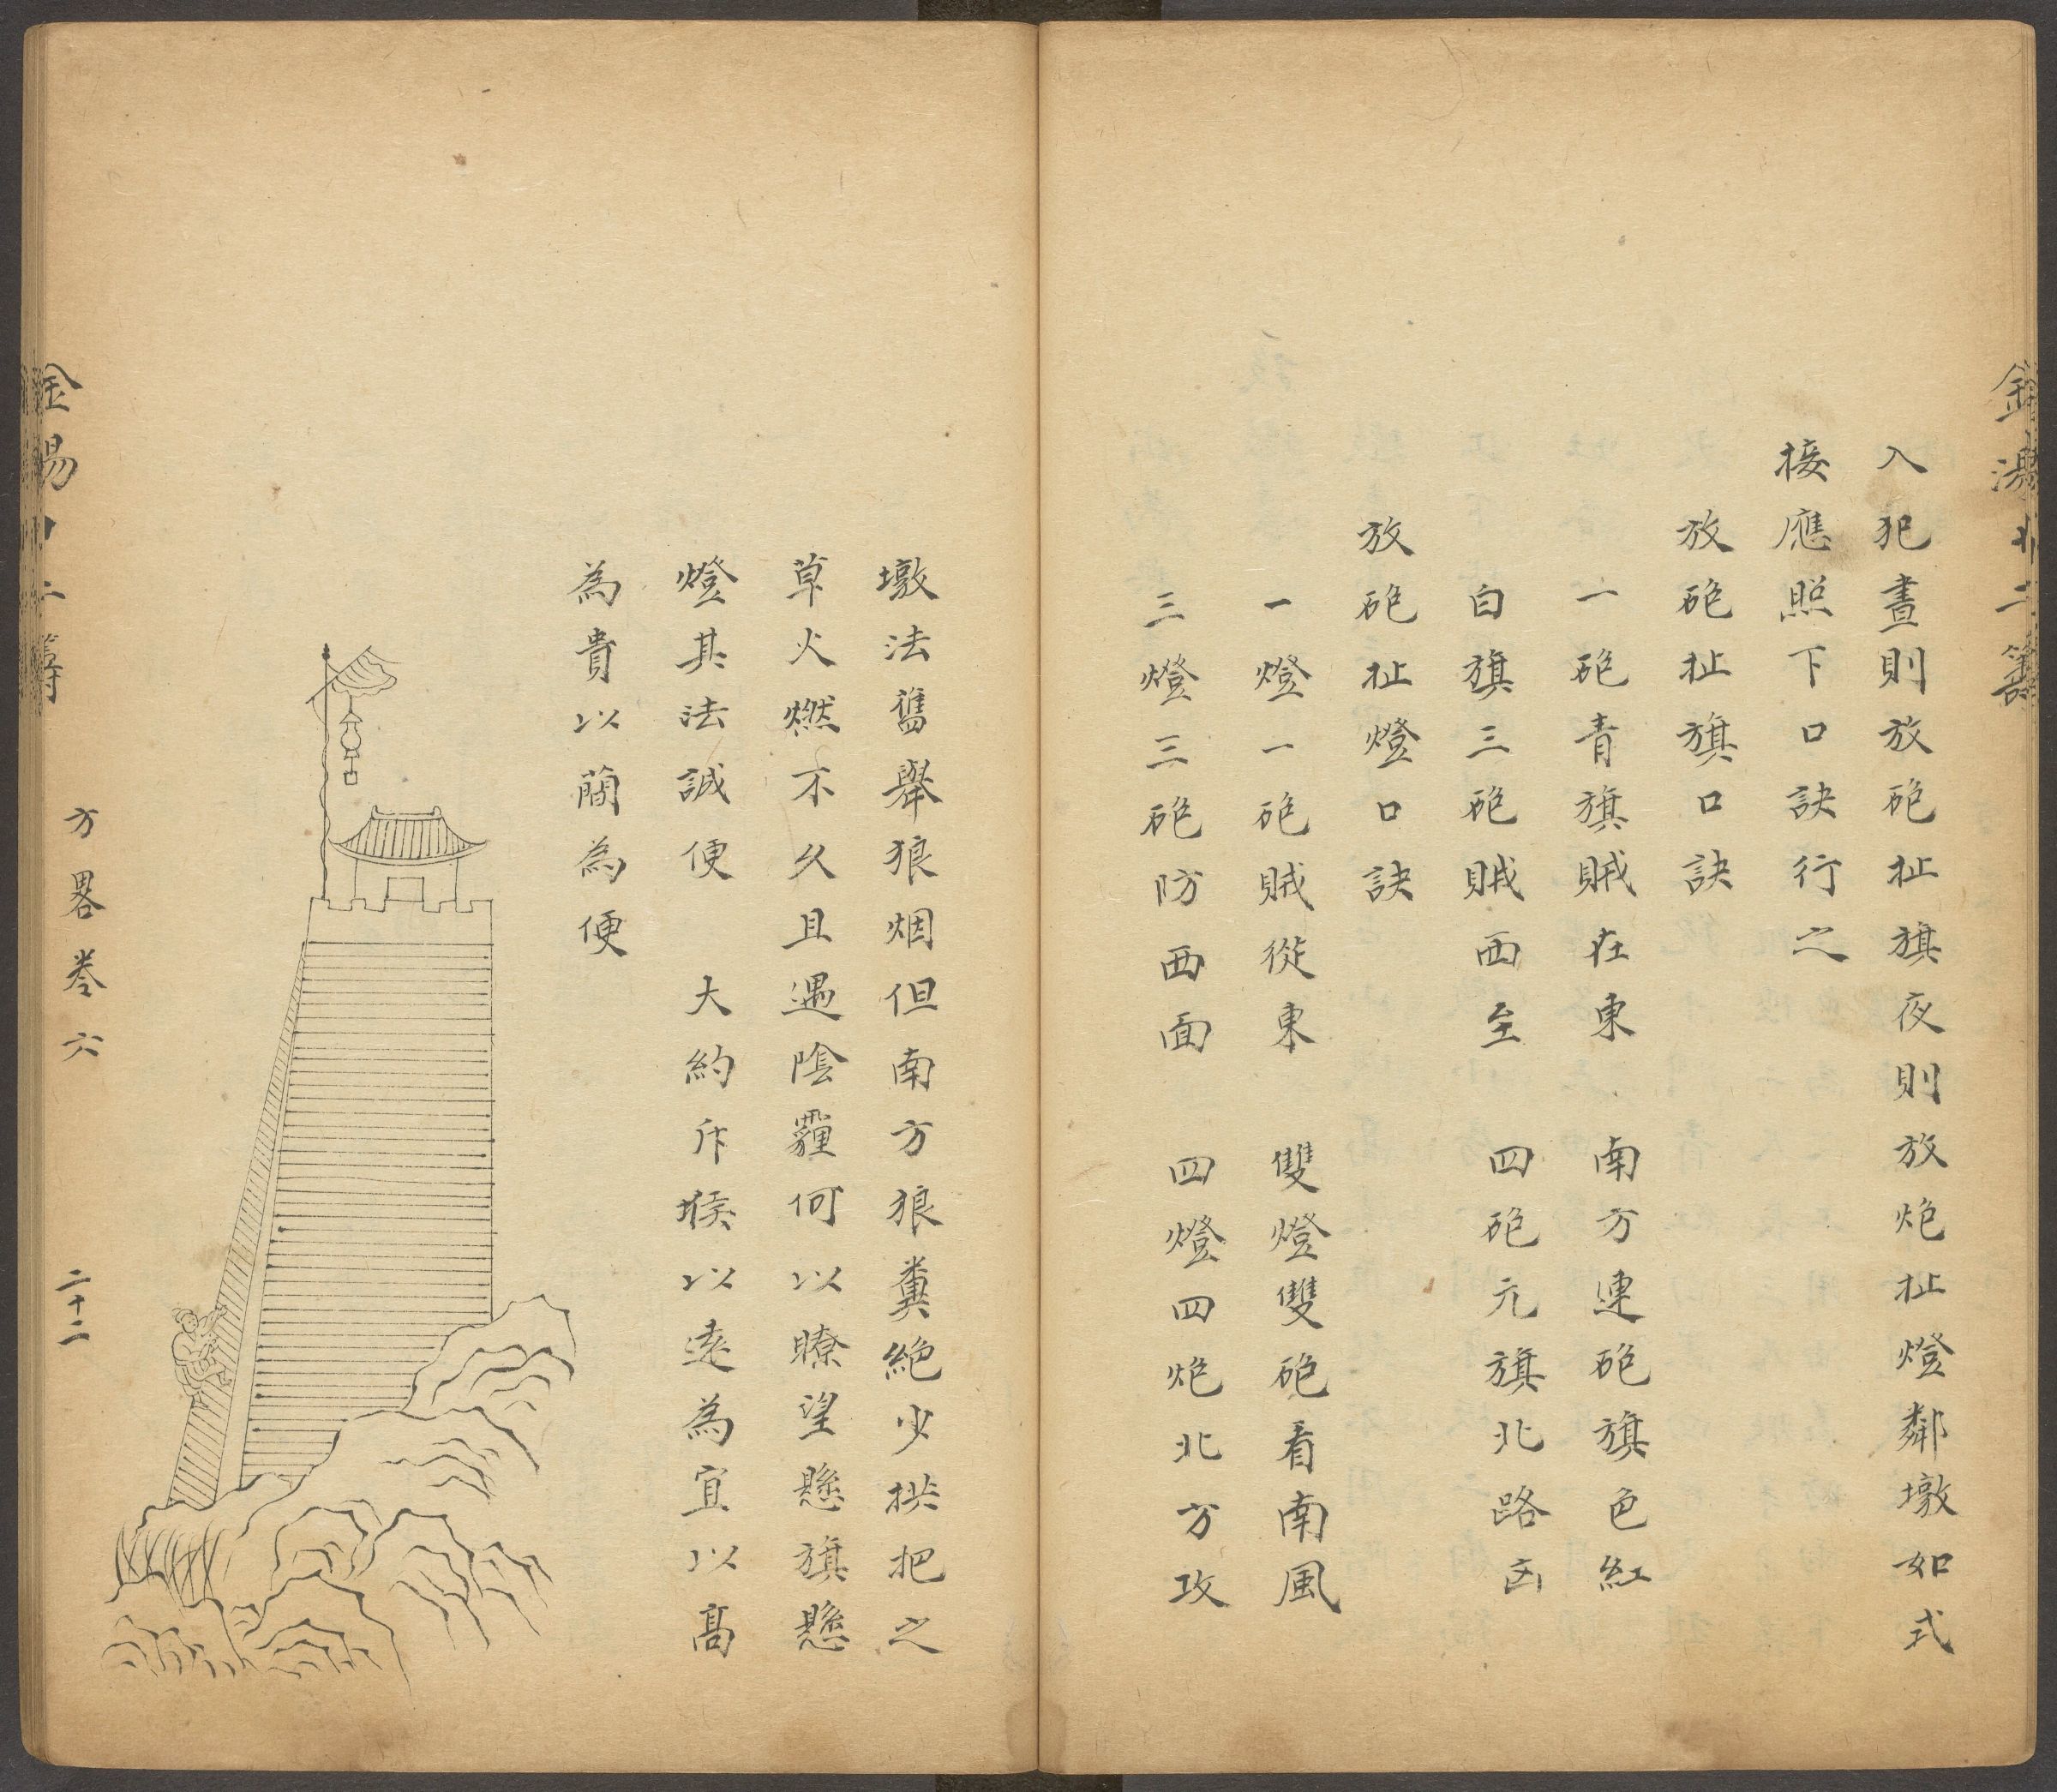 入犯晝則放砲扯旗夜則放炮扯燈鄰墩如式
接應照下口訣行之
放砲扯旗口訣
一砲青旗賊在東 南方連砲旗色紅
白旗三砲賊西至 四砲元旗北路凶
放砲扯燈口訣
一燈一砲賊從東 雙燈雙砲看南風
三燈三砲防西面 四燈四炮北方攻
墩法舊舉狼烟但南方狼糞絕少拱把之
草火燃不久且遇陰霾何以瞭望懸旗懸
燈其法誠便 大約斥堠以遠為宜以高
為貴以簡為便
方畧卷六
二十二